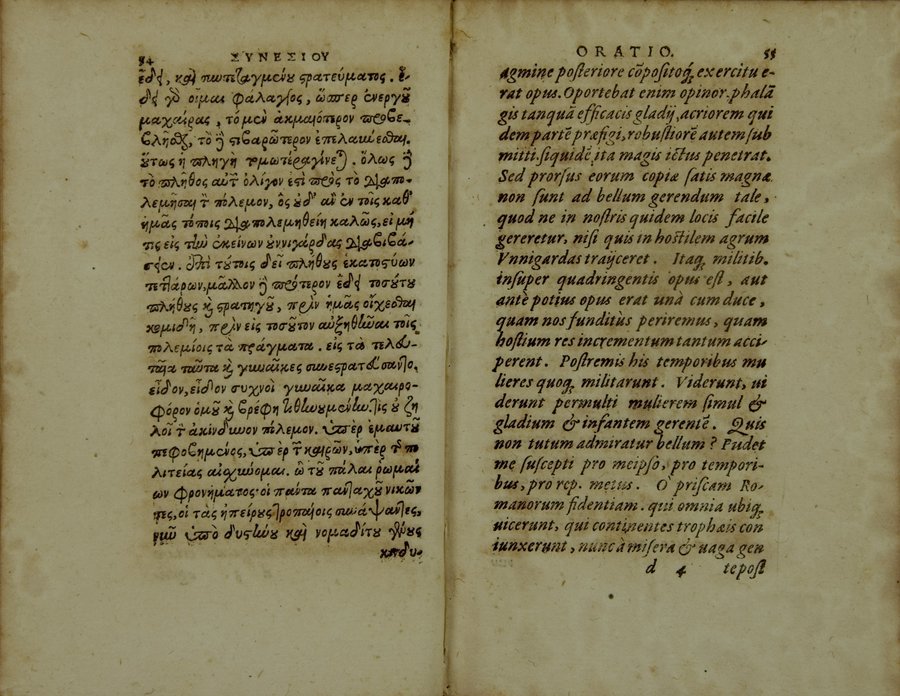 54 ΣΥΝΕΣΙΟΥ
ἔδει, καὶ συντεταγμένου στρατεύματος. ἔ-
δει γὸ οἶμαι φάλαγγος, ὥσπερ ἐνεργοῦ
μαχαίρας, τὸ μὲν ἀκμαιότερον προβε-
βλῆσθαι, τὸ δὲ στιβαρώτερον
οὕτως ἡ πληγὴ τομωτέρα γίνεται. ὅλως δὲ
τὸ πλῆθος αὐτῶν ὀλίγον ἐστὶ πρὸς τὸ διαπο-
λεμῆσαι τὸν πόλεμον, ὃς οὐδ' ἂν ἐν τοῖς καθ'
ἡμᾶς τόποις διαπολεμηθείη καλῶς, εἰ μή
τις εἰς τὴν ἐκείνων οὐννιγάρδας διαβιβά-
σειεν. ἐπὶ τούτοις δεῖ πλήθους ἑκατοστύων
τεττάρων, μᾶλλον δὲ πρότερον ἔδει τοσούτου
πλήθους καὶ στρατηγοῦ, πρὶν ἡμᾶς οἴχεσθαι
κομιδῇ, πρὶν εἰς τοσοῦτον αὐξηθῆναι τοῖς
πολεμίοις τὰ πράγματα. εἰς τὰ τελευ-
ταῖα ταῦτα καὶ γυναῖκες συνεστρατεύσαντο.
εἶδον, εἶδον συχνοὶ γυναῖκα μαχαιρο-
φόρον ὁμοῦ καὶ βρέφη τιθηνουμένην. τίς οὐ ζη-
λοῖ τὸν ἀκίνδυνον πόλεμον. ὑπὲρ ἐμαυτοῦ
πεφοβημένος, ὑπὲρ τῶν καιρῶν, ὑπὲρ τῆς πο
λιτείας αἰσχύνομαι. ὢ τοῦ πάλαι ῥωμαί
ων φρονήματος· οἱ πάντα πανταχοῦ νικῶν
τες, οἱ τὰς ἠπείρους τροπαίοις συνάψαντες,
νῦν ὑπὸ δυστήνου καὶ νομαδίτου γένους
κινδυ-
ORATIO. 55
agmine posteriore cōpositoq́; exercitu e-
rat opus. Oportebat enim opinor, phalā
gis tanquā efficacis gladij, acriorem qui
dem partē præfigi, robustiorē autem sub
mitti. siquidē ita magis ictus penetrat.
Sed prorsus eorum copiæ satis magnæ
non sunt ad bellum gerendum tale,
quod ne in nostris quidem locis facile
gereretur, nisi quis in hostilem agrum
Vnnigardas traijceret. Itaq́; militib.
insuper quadringentis opus est, aut
antè potius opus erat unà cum duce,
quam nos funditùs periremus, quam
hostium res incrementum tantum acci
perent. Postremis his temporibus mu
lieres quoq́; militarunt. Viderunt, ui
derunt permulti mulierem simul &
gladium & infantem gerentē. Quis
non tutum admiratur bellum? Pudet
me suscepti pro meipso, pro tempori-
bus, pro rep. metus. O priscam Ro-
manorum fidentiam. qui omnia ubiq́;
uicerunt, qui continentes trophæis con
iunxerunt, nunc à misera & uaga gen
d 4 te post